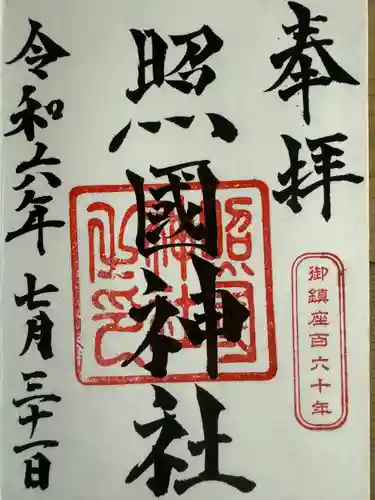 奉拝
御鎮座百六十年
照國神社
照国神社之印
令和六年七月三十一日